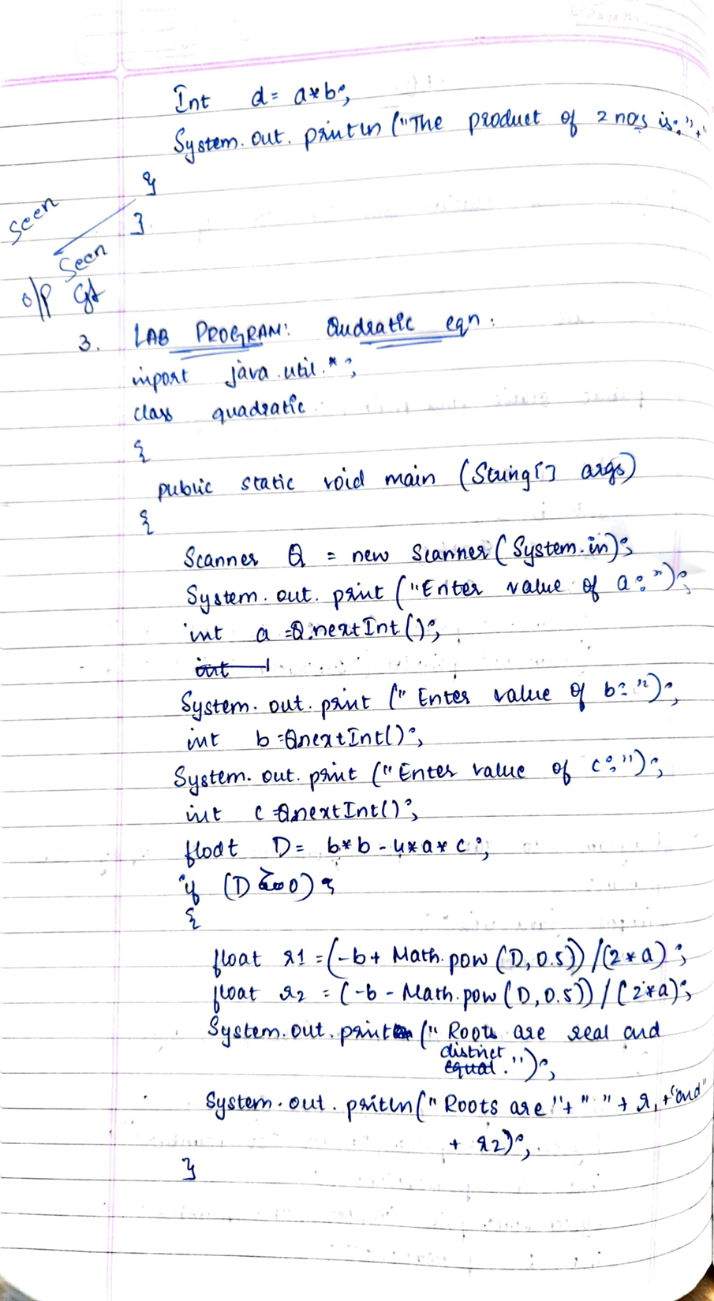 Int d = a*b;
System.out.println ("The product of 2 nos is:",
}
}
seen
Seen
o/p
3. LAB PROGRAM: Qudratic eqn:
import java.util.*;
class quadratic
{
public static void main (String[] args)
{
Scanner Q = new Scanner (System.in);
System.out.print ("Enter value of a:");
int a = Q.nextInt();
System.out.print (" Enter value of b:");
int b = Q.nextInt();
System.out.print ("Enter value of c:");
int c = Q.nextInt();
float D = b*b-4*a*c;
if (D > 0)
{
float r1 = (-b + Math.pow (D, 0.5)) / (2*a);
float r2 = (-b - Math.pow (D, 0.5)) / (2*a);
System.out.print (" Roots are real and
distinct
equal.");
System.out.pritln(" Roots are "+" "+ r1 +"and"
+ r2);
}